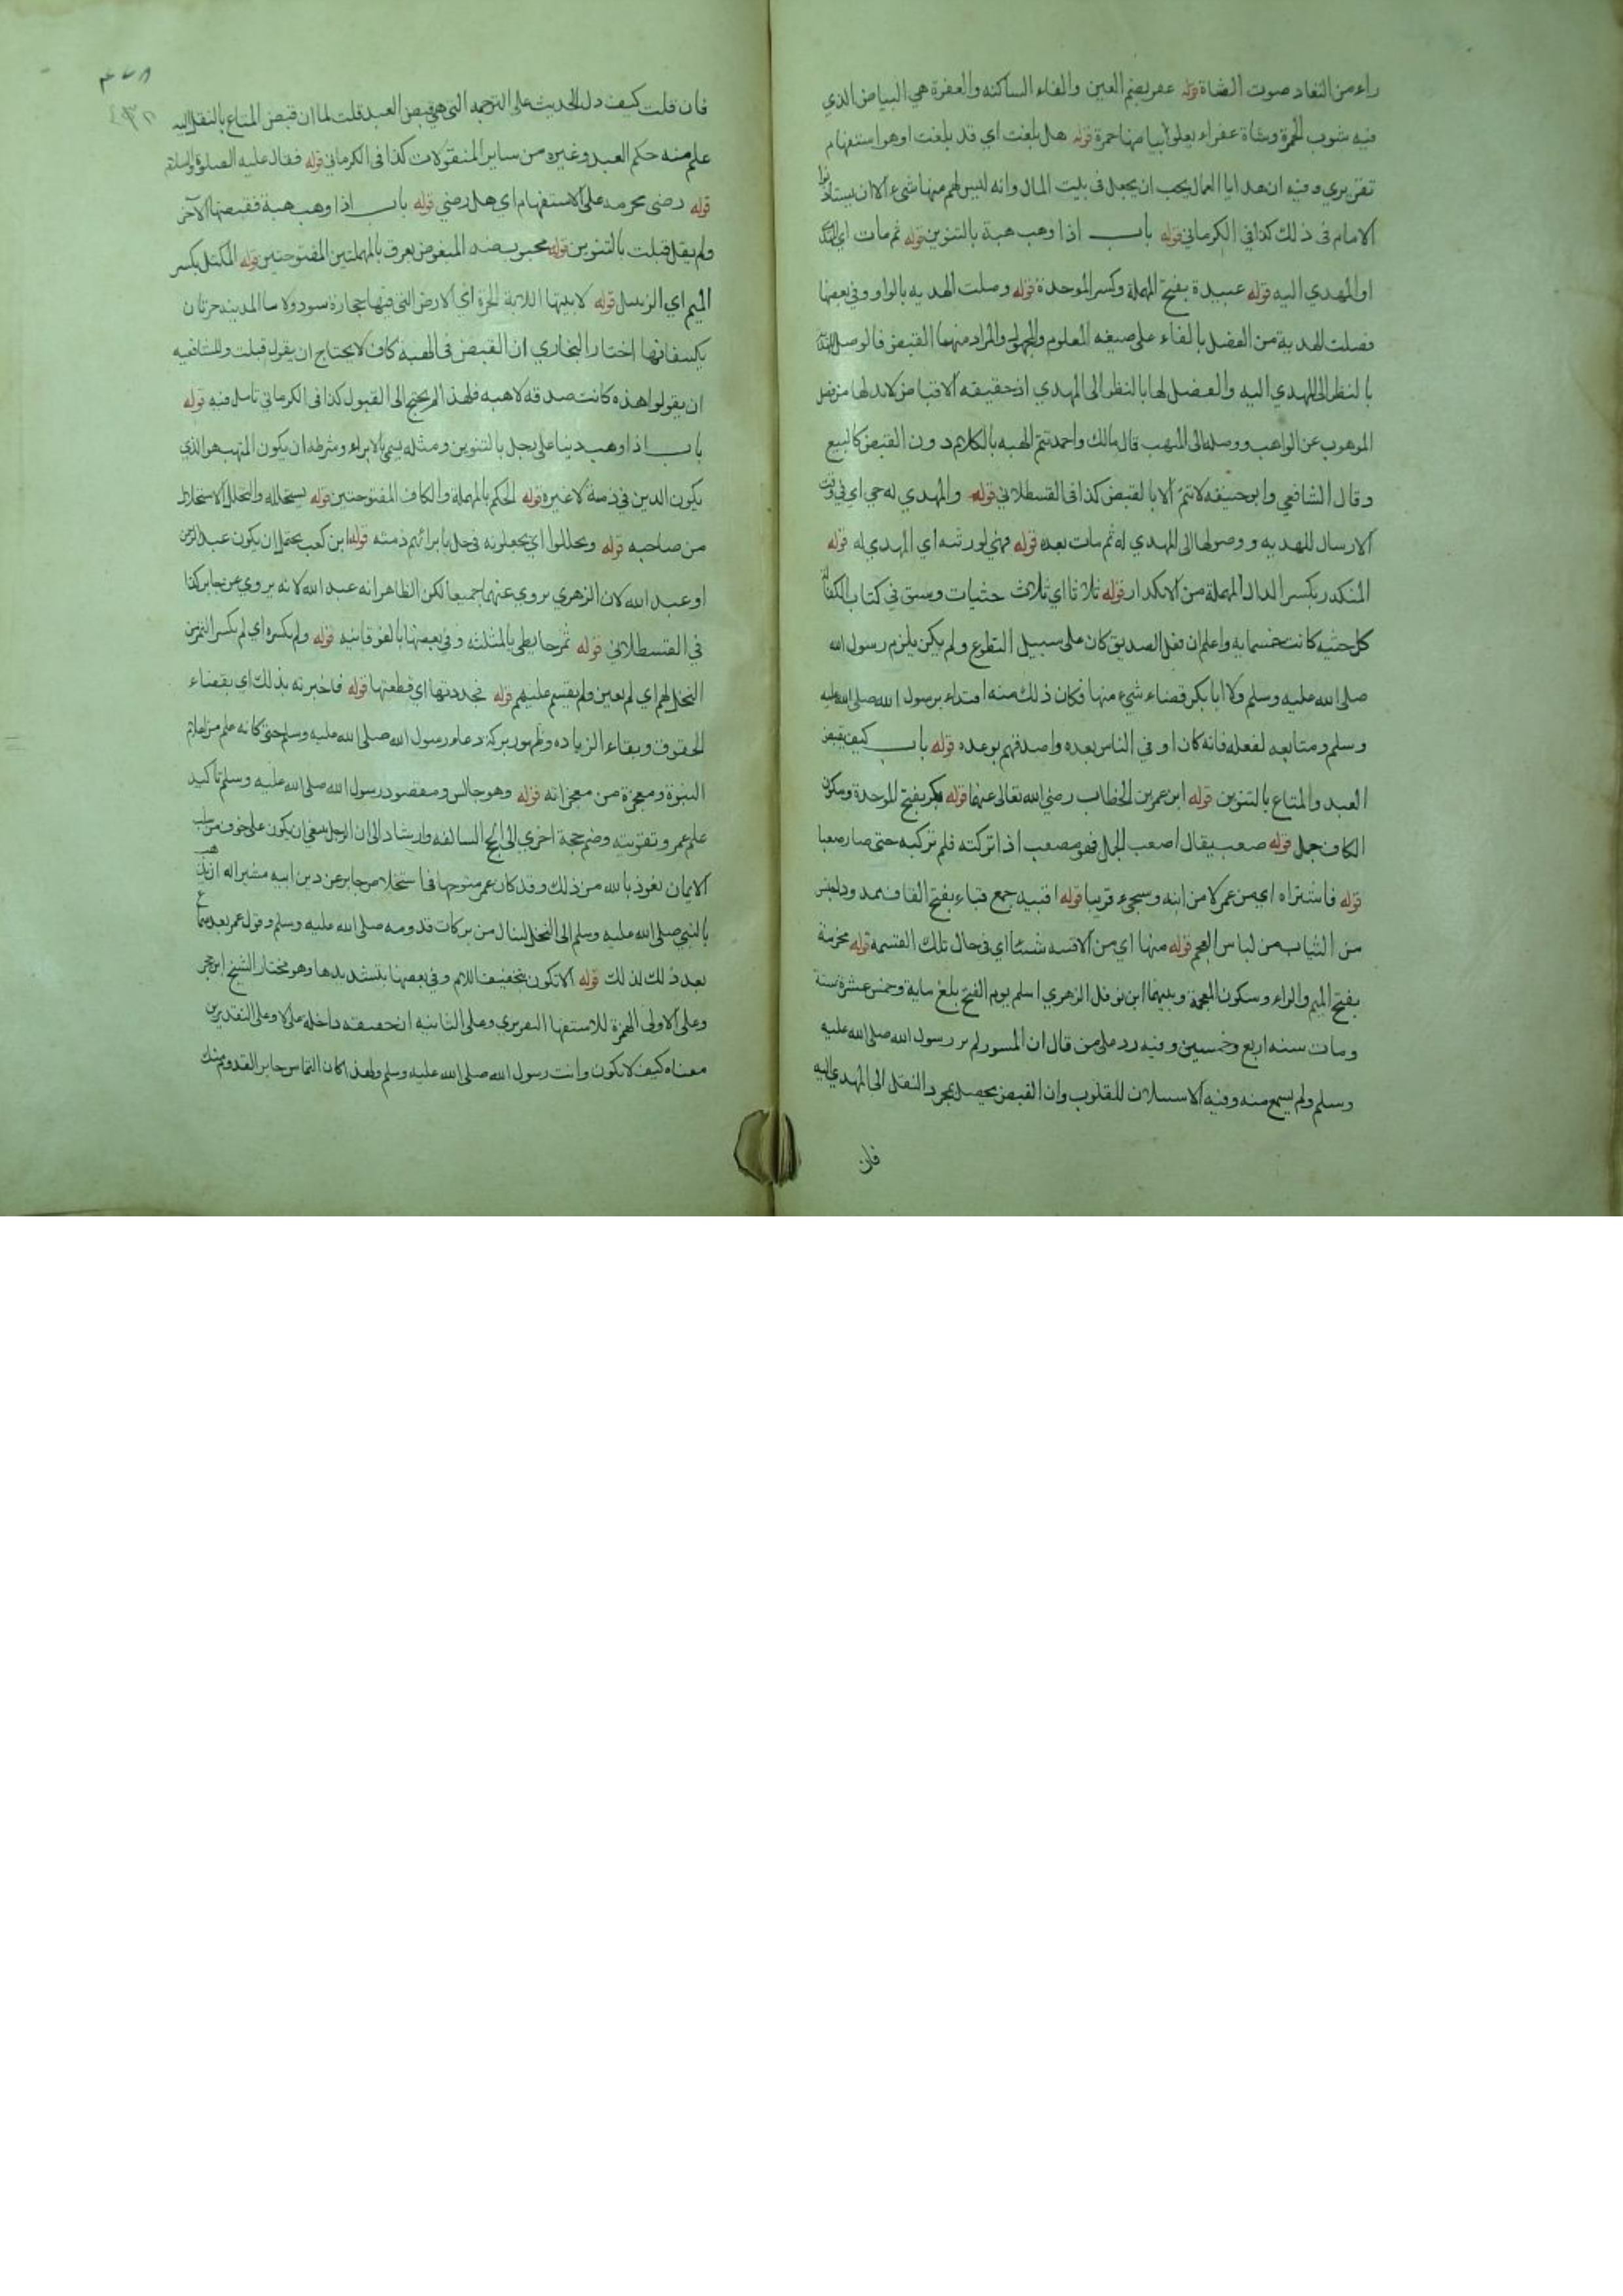 راء من النفاد صوت الشاة قوله عفر بضم العين والفاء الساكنه والعفرة هي البياض الذي
فيه شوب الحمرة وشاة عفراء يعلو بياضها حمرة قوله هل بلغت اي قد بلغت او هو استفهام
تقريري وفيه ان هدايا العمال يجب ان يجعل في بيت المال وانه ليس لهم منها شيء الا ان يستاذنوا
الامام في ذلك كذا في الكرماني قوله باب اذا وهب هبة بالتنوين قوله ثم مات اي
او المهدي اليه قوله عبيدة بفتح المهملة وكسر الموحدة قوله وصلت الهديه بالواو وفي بعضها
فصلت الهدية من الفصل بالفاء على صيغه المعلوم والمجهول والمراد منهما القبض فالوصل
بالنظر الى المهدي اليه والفصل لها بالنظر الى المهدي اذ حقيقه الاقباض لابد لها من فصل
الموهوب عن الواهب ووصله الى المتهب قال مالك واحمد تتم الهبه بالكلام دون القبض كالبيع
وقال الشافعي وابو حنيفه لا تتم الا بالقبض كذا في القسطلاني قوله والمهدي له حي اي في وقت
الارسال للهديه ووصولها الى المهدي له ثم مات بعده قوله فهي لورثته اي المهدي له قوله
المنكدر بكسر الدال المهملة من الانكدار قوله ثلاثا اي ثلاث حثيات وسبق في كتاب الكفالة
كل حثيه كانت خمسمايه واعلم ان فعل الصديق كان على سبيل التطوع ولم يكن يلزم رسول الله
صلى الله عليه وسلم ولا ابا بكر قضاء شيء منها فكان ذلك منه اقتداء برسول الله صلى الله عليه
وسلم ومتابعه لفعله فانه كان اوفي الناس بعده واصدقهم بوعده قوله باب كيف يقبض
العبد والمتاع بالتنوين قوله ابن عمر بن الخطاب رضي الله تعالى عنهما قوله بكر بفتح الموحدة وسكون
الكاف جمل قوله صعب يقال اصعب الجمل فهو مصعب اذا تركته فلم تركبه حتى صار صعبا
قوله فاشتراه اي من عمر لا من ابنه وسيجيء قريبا قوله اقبيه جمع قباء بفتح القاف ممدود
من الثياب من لباس العجم قوله منها اي من الاقبيه شيئا اي في حال تلك القسمة قوله مخرمة
بفتح الميم والراء وسكون المعجمة وبينهما ابن نوفل الزهري اسلم يوم الفتح بلغ ماية وخمس عشرة سنة
ومات سنه اربع وخمسين وفيه رد على من قال ان المسور لم ير رسول الله صلى الله عليه
وسلم ولم يسمع منه وفيه الاستيلاف للقلوب وان القبض يحصل بمجرد النقل الى المهدي اليه
فان
فان قلت كيف دل الحديث على الترجمه التي هي قبض العبد قلت لما ان قبض المتاع بالنقل اليه
علم منه حكم العبد وغيره من ساير المنقولات كذا في الكرماني قوله فقال عليه الصلوة والسلام
قوله رضى مخرمه على الاستفهام اي هل رضي قوله باب اذا وهب هبة فقبضها الآخر
ولم يقل قبلت بالتنوين قوله محبوب ضد المبغوض بعرق بالمهملتين المفتوحتين قوله المكتل بكسر
الميم اي الزبيل قوله لابتيها اللابة الحرة اي الارض التي فيها حجارة سود ولابتا المدينه حرتان
يكتنفانها اختار البخاري ان القبض في الهبة كاف لا يحتاج ان يقول قبلت وللشافعيه
ان يقولوا هذه كانت صدقه لا هبه فلهذا لم يحتج الى القبول كذا في الكرماني تامل فيه قوله
باب اذا وهب دينا على رجل بالتنوين ومثله يسمى بالابراء وشرطه ان يكون المتهب هو الذي
يكون الدين في ذمة لا غيره قوله الحكم بالمهملة والكاف المفتوحتين قوله يتحلله والتحلل الاستحلال
من صاحبه قوله ويحللوا اي يجعلونه في حل بابرائهم ذمته قوله ابن كعب يحتمل ان يكون عبد الرحمن
او عبد الله لان الزهري يروي عنهما جميعا لكن الظاهر انه عبد الله لانه يروي عن جابر كذا
في القسطلاني قوله ثمر حايطي بالمثلثه وفي بعضها بالفوقانيه قوله ولم يكسره اي لم يكسر الثمر من
النخل لهم اي لم يعين ولم يقسم عليهم قوله فجددتها اي قطعتها قوله فاخبرته بذلك اي بقضاء
الحقوق وبقاء الزياده وظهور بركة دعاء رسول الله صلى الله عليه وسلم حتى كانه علم من اعلام
النبوة ومعجزة من معجزاته قوله وهو جالس ومقصود رسول الله صلى الله عليه وسلم تاكيد
علم عمر وتقويته وضم حجة اخري الى الحجج السالفه وارشاد الى ان الرجل ينبغي ان يكون على خوف من سلب
الايمان نعوذ بالله من ذلك وقد كان عمر متوجها في استخلاص جابر عن دين ابيه مشيرا له ان يذهب
بالنبي صلى الله عليه وسلم الى النخل لينال من بركات قدومه صلى الله عليه وسلم وقول عمر بعد سماع
بعد ذلك لذلك قوله الا تكون بتخفيف اللام وفي بعضها بتشديدها وهو مختار الشيخ ابن حجر
وعلى الاولى الهمزة للاستفهام التقريري وعلى الثانيه ان خفيفه داخله على لا وعلى التقديرين
معناه كيف لا تكون وانت رسول الله صلى الله عليه وسلم ولهذا كان التماس جابر القدوم منك